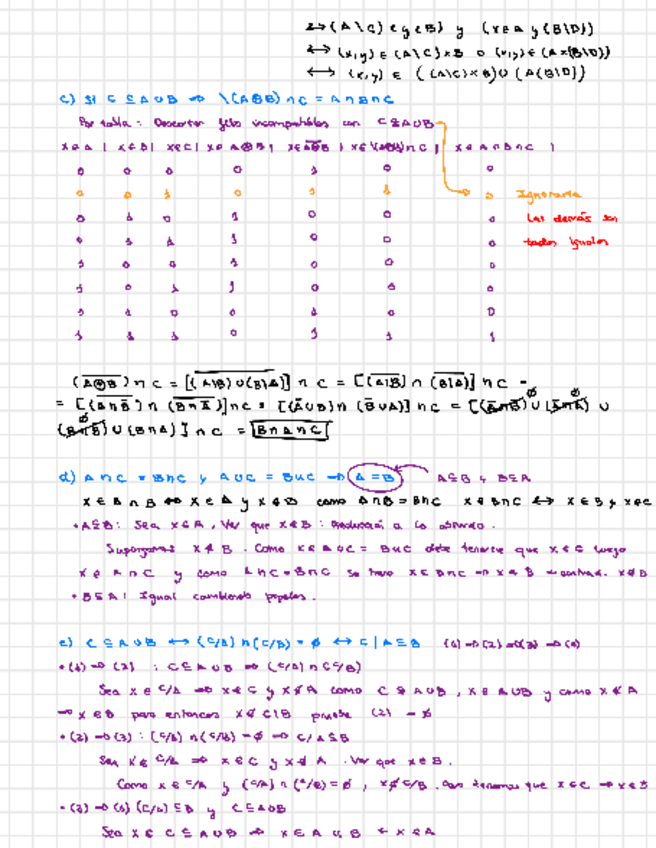 ↔ (A\C) e y ∈ B) y (x∈A y (B\D))
↔ (x,y) ∈ (A\C)×B o (x,y) ∈ (A×(B\D))
↔ (x,y) ∈ ((A\C)×B) ∪ (A(B\D))
c) Si C ⊆ A ∪ B ⇒ \(A⊕B) ∩ C = A∩B∩C
Por tabla : Descartar filas incompatibles con C ⊆ A∪B
x∈A | x∈B | x∈C | x∈A⊕B | x∈A⊕B | x∈(A⊕B)∩C | x∈A∩B∩C |
0 0 0 0 1 0 0
0 0 1 0 1 1 0 Ignorarla
0 1 0 1 0 0 0 Las demás son
0 1 1 1 0 0 0 todas iguales
1 0 0 1 0 0 0
1 0 1 1 0 0 0
1 1 0 0 1 0 0
1 1 1 0 1 1 1
(A⊕B) ∩ C = [(A\B) ∪ (B\A)] ∩ C = [(A\B) ∩ (B\A)] ∩ C =
= [(A∩B̄) ∩ (B∩Ā)] ∩ C = [(Ā∪B) ∩ (B̄∪A)] ∩ C = [(Ā∩B̄) ∪ (Ā∩A) ∪
(B∩B̄) ∪ (B∩A)] ∩ C = B∩A∩C
d) A∩C = B∩C y A∪C = B∪C ⇒ A=B A⊆B y B⊆A
x∈A∩B ↔ x∈A y x∈B como A∩B = B∩C x∈B∩C ↔ x∈B y x∈C
• A⊆B : Sea x∈A, Ver que x∈B : Reducción a lo absurdo.
Supongamos x∉B. Como x∈A∪C = B∪C debe tenerse que x∈C luego
x∈A∩C y como A∩C = B∩C se tiene x∈B∩C ⇒ x∈B x∉B
• B⊆A : Igual cambiando papeles.
e) C⊆A∪B ↔ (C/A)∩(C/B) = ∅ ↔ C|A⊆B (1)⇒(2)⇒(3)⇒(1)
• (1) ⇒ (2) : C⊆A∪B ⇒ (C/A)∩(C/B)
Sea x∈C/A ⇒ x∈C y x∉A como C⊆A∪B, x∈A∪B y como x∉A
⇒ x∈B pero entonces x∉C|B prueba (2) = ∅
• (2) ⇒ (3) : (C/A)∩(C/B) = ∅ ⇒ C/A⊆B
Sea x∈C/A ⇒ x∈C y x∉A. Ver que x∈B.
Como x∈C/A y (C/A)∩(C/B) = ∅, x∉C/B. tenemos que x∈C ⇒ x∈B
• (3) ⇒ (1) (C/A)⊆B y C⊆A∪B
Sea x∈C⊆A∪B ⇒ x∈A∪B x∈A